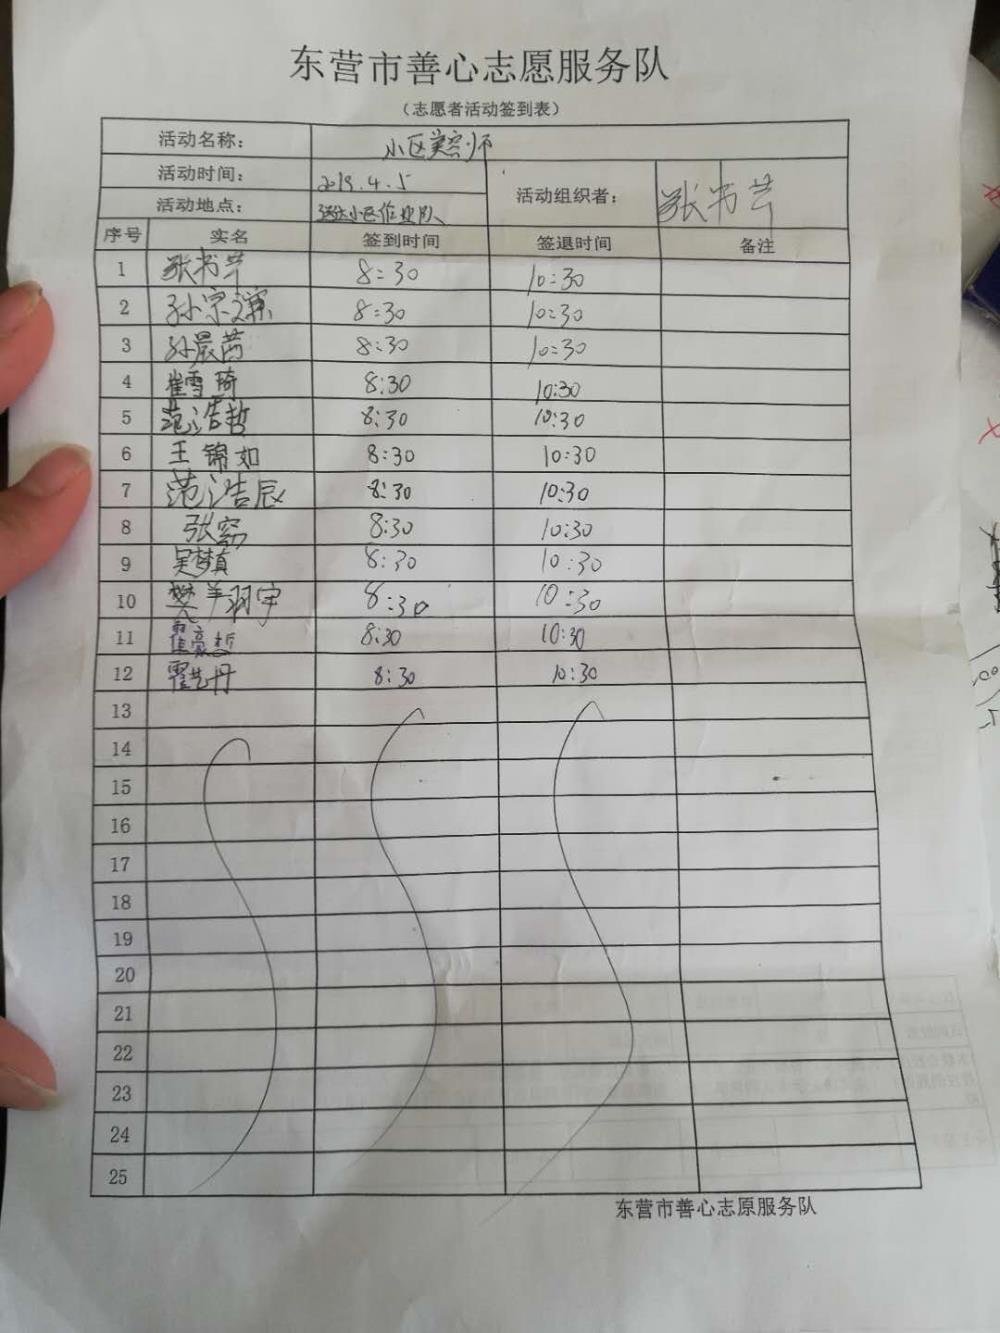 东营市善心志愿服务队
（志愿者活动签到表）
活动名称： 小区美容师
活动时间： 2019.4.5 活动组织者： 张书芹
活动地点： 小区作业队
序号 实名 签到时间 签退时间 备注
1 张书芹 8:30 10:30
2 孙宗 8:30 10:30
3 孙晨茜 8:30 10:30
4 崔雪琦 8:30 10:30
5 范浩哲 8:30 10:30
6 王锦如 8:30 10:30
7 范浩辰 8:30 10:30
8 张窈 8:30 10:30
9 吴梦真 8:30 10:30
10 樊羊羽宇 8:30 10:30
11 霍豪哲 8:30 10:30
12 霍艺丹 8:30 10:30
13
14
15
16
17
18
19
20
21
22
23
24
25
东营市善心志原服务队